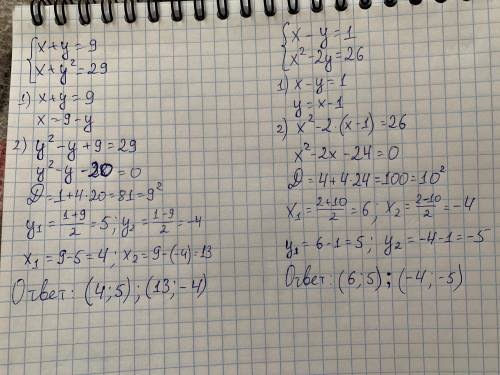 {x+y=9
{x+y²=29
1) x+y=9
x=9-y
2) y²-y+9=29
y²-y-20=0
D=1+4·20=81=9²
y₁=(1+9)/2=5; y₂=(1-9)/2=-4
x₁=9-5=4; x₂=9-(-4)=13
Ответ: (4;5); (13;-4)
{x-y=1
{x²-2y=26
1) x-y=1
y=x-1
2) x²-2·(x-1)=26
x²-2x-24=0
D=4+4·24=100=10²
x₁=(2+10)/2=6, x₂=(2-10)/2=-4
y₁=6-1=5; y₂=-4-1=-5
Ответ: (6;5); (-4;-5)